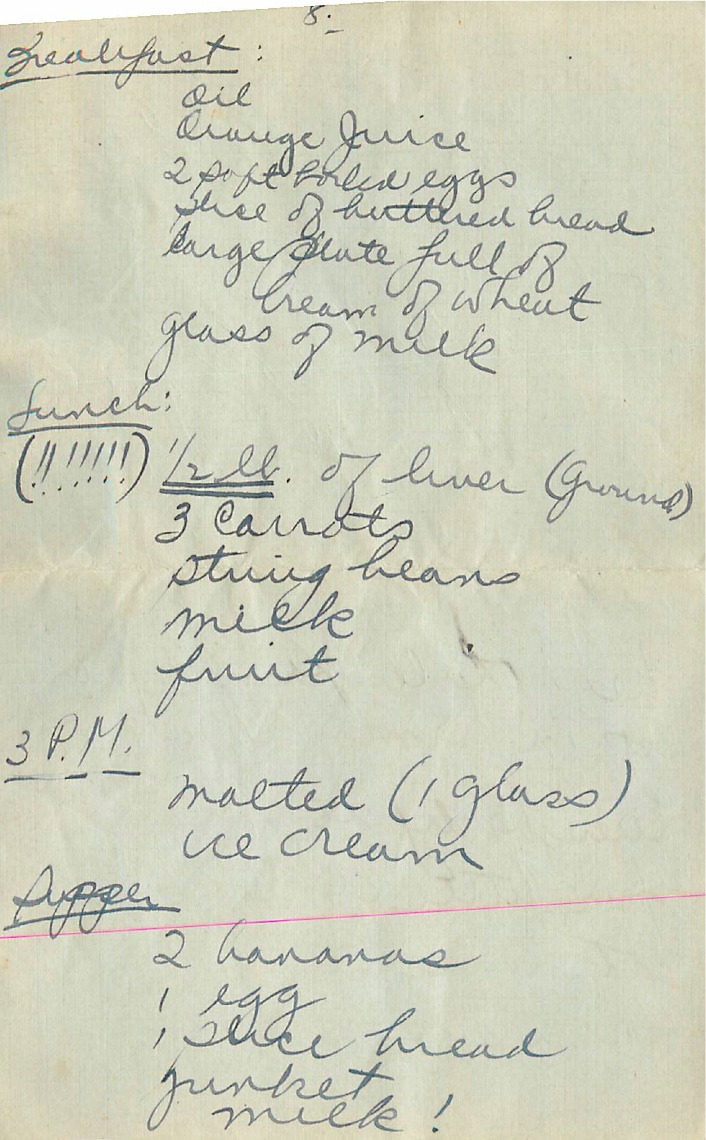 8.
Breakfast:
Oil
Orange Juice
2 soft boiled eggs
slice of buttered bread
large plate full of
cream of wheat
glass of milk
Lunch:
(!!!!!!!) 1/2 lb. of liver (Ground)
3 Carrots
string beans
milk
fruit
3 P.M.
malted (1 glass)
ice cream
Supper
2 bananas
1 egg
1 slice bread
junket
milk!